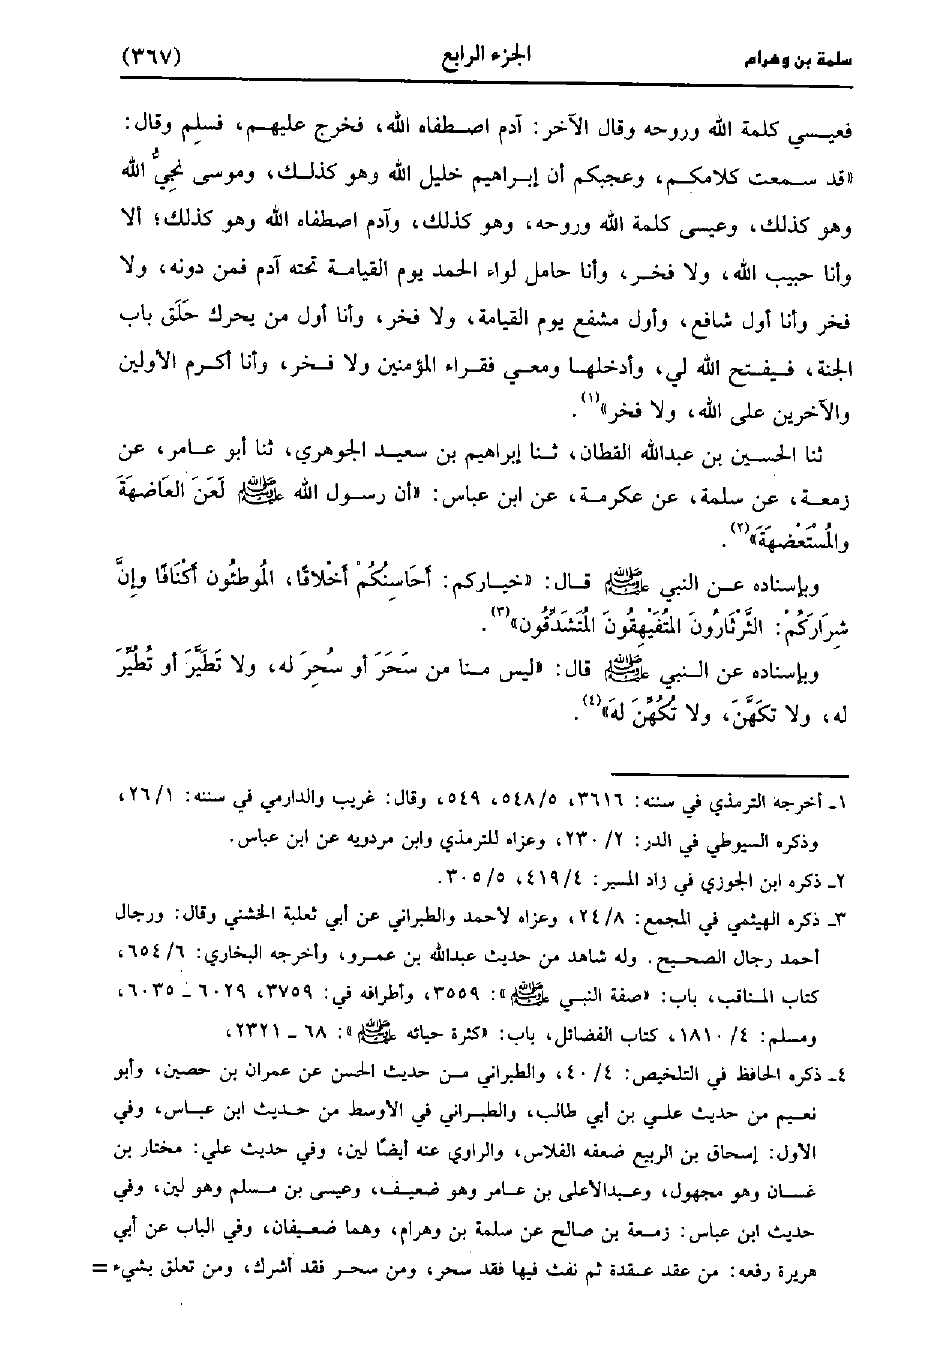 سلمة بن وهرام الجزء الرابع (٣٦٧)
فعيسى كلمة الله وروحه وقال الآخر: آدم اصطفاه الله، فخرج عليهم، فسلم وقال:
«قد سمعت كلامكم، وعجبكم أن إبراهيم خليل الله وهو كذلك، وموسى نجيُّ الله
وهو كذلك، وعيسى كلمة الله وروحه، وهو كذلك، وآدم اصطفاه الله وهو كذلك؛ ألا
وأنا حبيب الله، ولا فخر، وأنا حامل لواء الحمد يوم القيامة تحته آدم فمن دونه، ولا
فخر وأنا أول شافع، وأول مشفع يوم القيامة، ولا فخر، وأنا أول من يحرك حَلَق باب
الجنة، فيفتح الله لي، وأدخلها ومعي فقراء المؤمنين ولا فخر، وأنا أكرم الأولين
والآخرين على الله، ولا فخر»(١).
ثنا الحسين بن عبدالله القطان، ثنا إبراهيم بن سعيد الجوهري، ثنا أبو عامر، عن
زمعة، عن سلمة، عن عكرمة، عن ابن عباس: «أن رسول الله ﷺ لَعَنَ العَاضِهَةَ
والمُسْتَعْضِهَةَ»(٢).
وبإسناده عن النبي ﷺ قال: «خياركم: أحَاسِنُكُمْ أخْلاقًا، المُوطئُون أكْنَافًا وإنَّ
شِرَارَكُمْ: الثَّرْثَارُونَ المُتَفَيْهِقُونَ المُتَشَدِّقُون»(٣).
وبإسناده عن النبي ﷺ قال: «ليس منا من سَحَرَ أو سُحِرَ له، ولا تَطَيَّرَ أو تُطُيِّرَ
له، ولا تكَهَّنَ، ولا تُكُهِّنَ لهَ»(٤).
١ـ أخرجه الترمذي في سننه: ٣٦١٦، ٥٤٨/٥، ٥٤٩، وقال: غريب والدارمي في سننه: ٢٦/١،
وذكره السيوطي في الدر: ٢٣٠/٢، وعزاه للترمذي وابن مردويه عن ابن عباس.
٢ـ ذكره ابن الجوزي في زاد المسير: ٤١٩/٤، ٣٠٥/٥.
٣ـ ذكره الهيثمي في المجمع: ٢٤/٨، وعزاه لأحمد والطبراني عن أبي ثعلبة الخشني وقال: ورجال
أحمد رجال الصحيح. وله شاهد من حديث عبدالله بن عمرو، وأخرجه البخاري: ٦٥٤/٦،
كتاب المناقب، باب: «صفة النبي ﷺ»: ٣٥٥٩، وأطرافه في: ٣٧٥٩، ٦٠٢٩ ـ ٦٠٣٥،
ومسلم: ١٨١٠/٤، كتاب الفضائل، باب: «كثرة حيائه ﷺ»: ٦٨ ـ ٢٣٢١،
٤ـ ذكره الحافظ في التلخيص: ٤٠/٤، والطبراني من حديث الحسن عن عمران بن حصين، وأبو
نعيم من حديث علي بن أبي طالب، والطبراني في الأوسط من حديث ابن عباس، وفي
الأول: إسحاق بن الربيع ضعفه الفلاس، والراوي عنه أيضًا لين، وفي حديث علي: مختار بن
غسان وهو مجهول، وعبدالأعلى بن عامر وهو ضعيف، وعيسى بن مسلم وهو لين، وفي
حديث ابن عباس: زمعة بن صالح عن سلمة بن وهرام، وهما ضعيفان، وفي الباب عن أبي
هريرة رفعه: من عقد عقدة ثم نفث فيها فقد سحر، ومن سحر فقد أشرك، ومن تعلق بشيء =